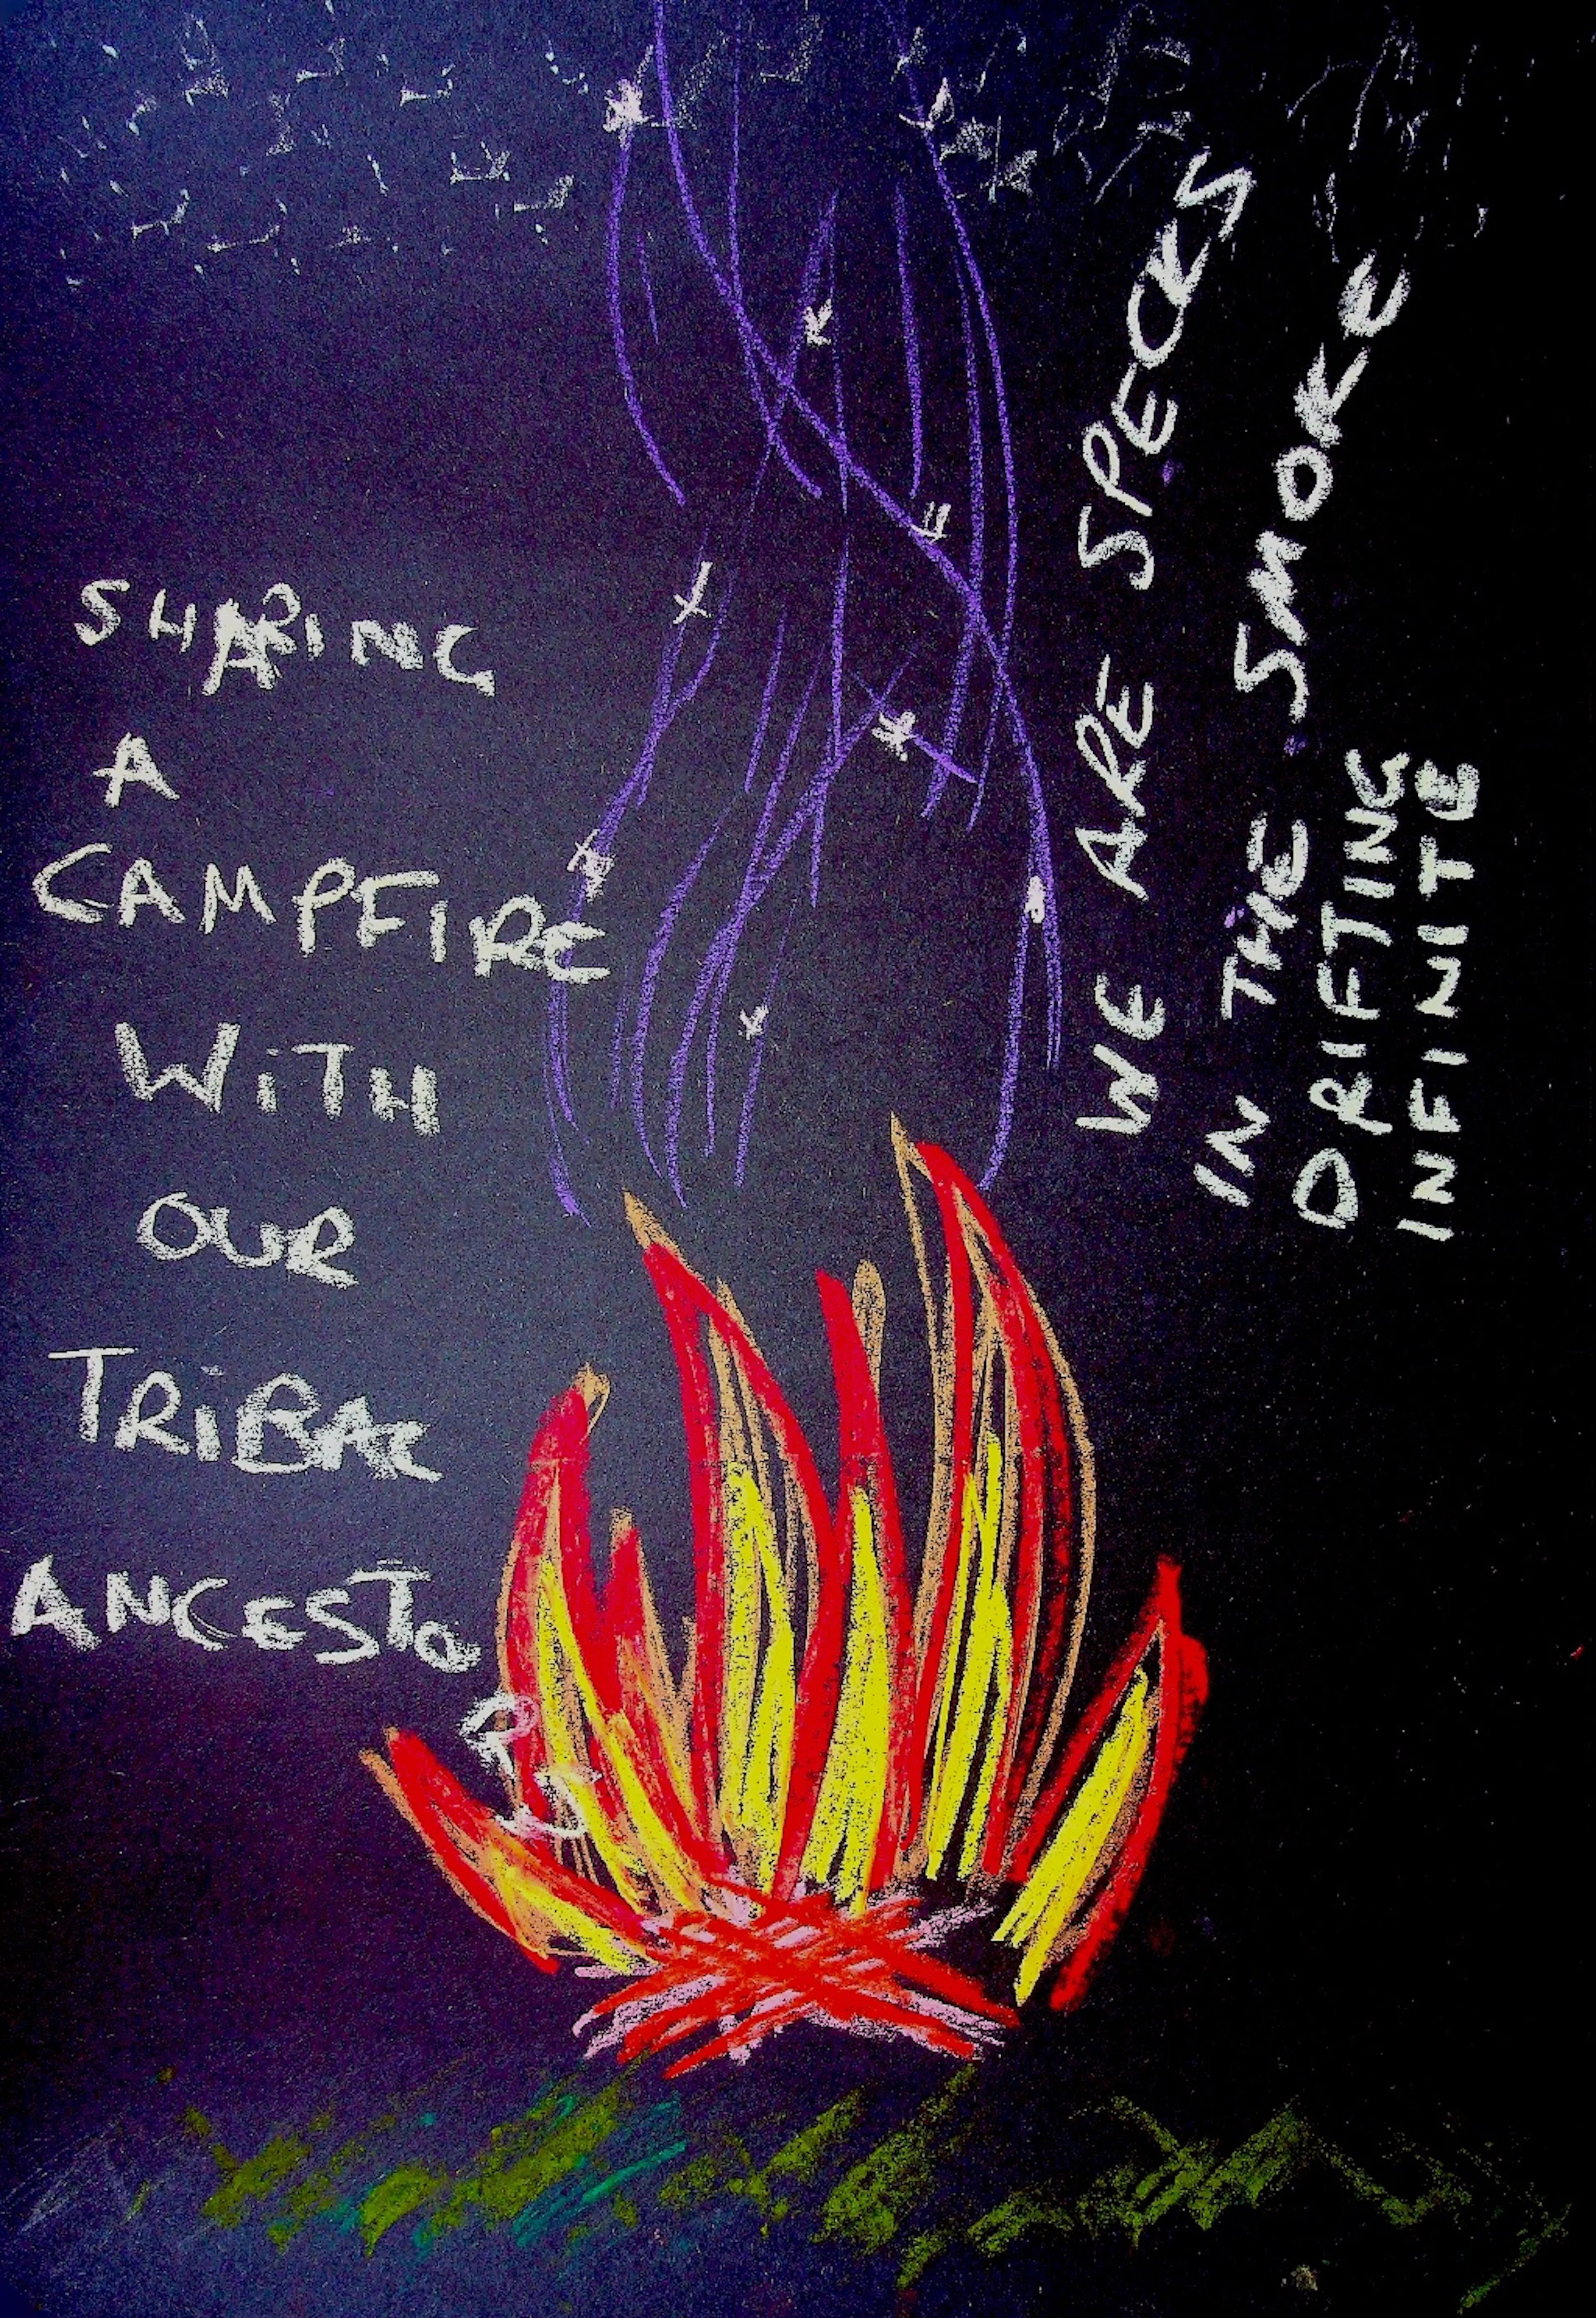 SHARING
A
CAMPFIRE
WITH
OUR
TRIBAL
ANCESTORS
WE ARE SPECKS
IN THE SMOKE
DRIFTING
INFINITE